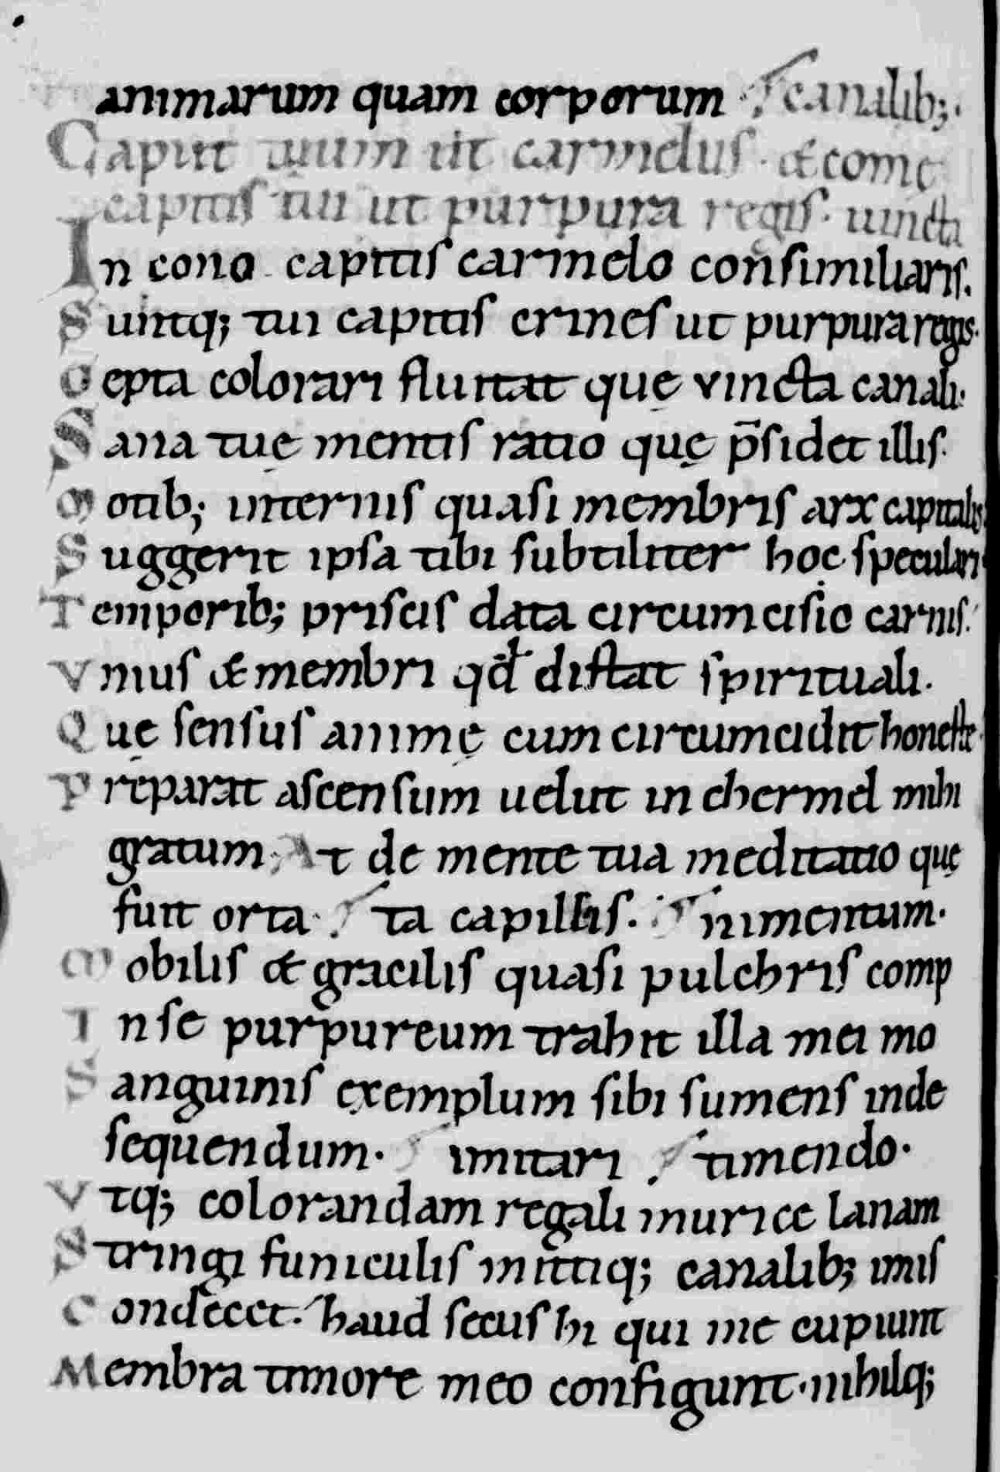 animarum quam corporum · canalib;·
Caput tuum ut carmelus · & come
capitis tui ut purpura regis · uincta
In cono capitis carmelo consimiliaris.
Suntq; tui capitis crines ut purpura regis·
Cepta colorari fluitat quę vincta canali·
Sana tuę mentis ratio quę p̄sidet illis·
Motib; internis quasi membris arx capitalis
Suggerit ipsa tibi subtiliter hoc speculari
Temporib; priscis data circumcisio carnis·
Vnius & membri qđ distat spirituali.
Quę sensus animę cum circumcidit honeste·
Pręparat ascensum uelut in chermel mihi
gratum; At de mente tua meditatio quę
fuit orta· Ita capillis. nimentum·
Mobilis & gracilis quasi pulchris comp
In se purpureum trahit illa mei mo
Sanguinis exemplum sibi sumens inde
sequendum· imitari timendo·
Vtq; colorandam regali murice lanam
Stringi funiculis mittiq; canalib; imis
Condecet· haud secus hi qui me cupiunt
Membra timore meo configunt·nihilq;